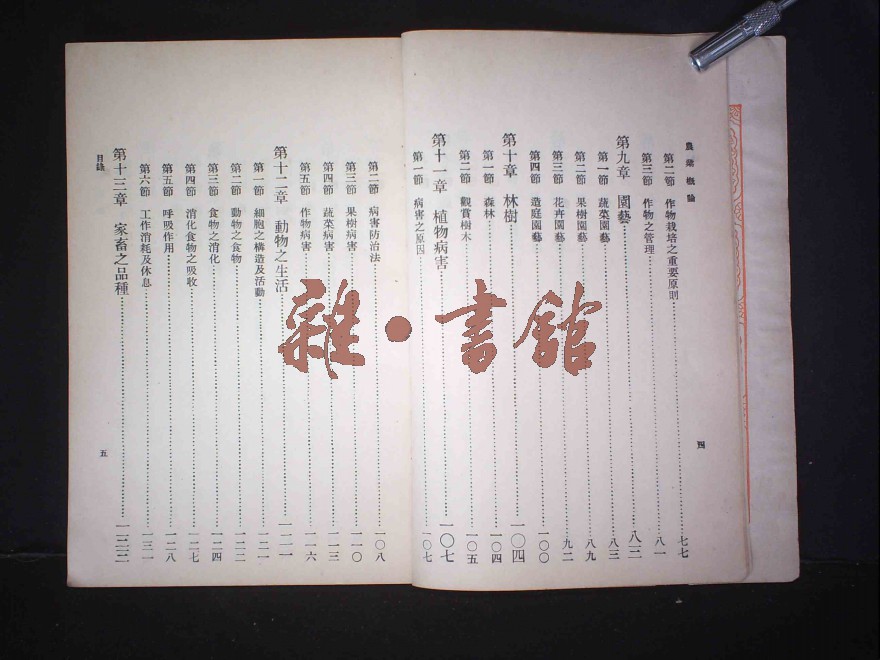 農業概論
第二節 作物栽培之重要原則 七七
第三節 作物之管理 八一
第九章 園藝 八三
第一節 蔬菜園藝 八三
第二節 果樹園藝 八九
第三節 花卉園藝 九二
第四節 造庭園藝 一〇〇
第十章 林樹 一〇四
第一節 森林 一〇四
第二節 觀賞樹木 一〇五
第十一章 植物病害 一〇七
第一節 病害之原因 一〇七
四
第二節 病害防治法 一〇八
第三節 果樹病害 一一〇
第四節 蔬菜病害 一一三
第五節 作物病害 一一六
第十二章 動物之生活 一二一
第一節 細胞之構造及活動 一二一
第二節 動物之食物 一二三
第三節 食物之消化 一二四
第四節 消化食物之吸收 一二七
第五節 呼吸作用 一二八
第六節 工作消耗及休息 一三一
第十三章 家畜之品種
目錄
五
雜·書館